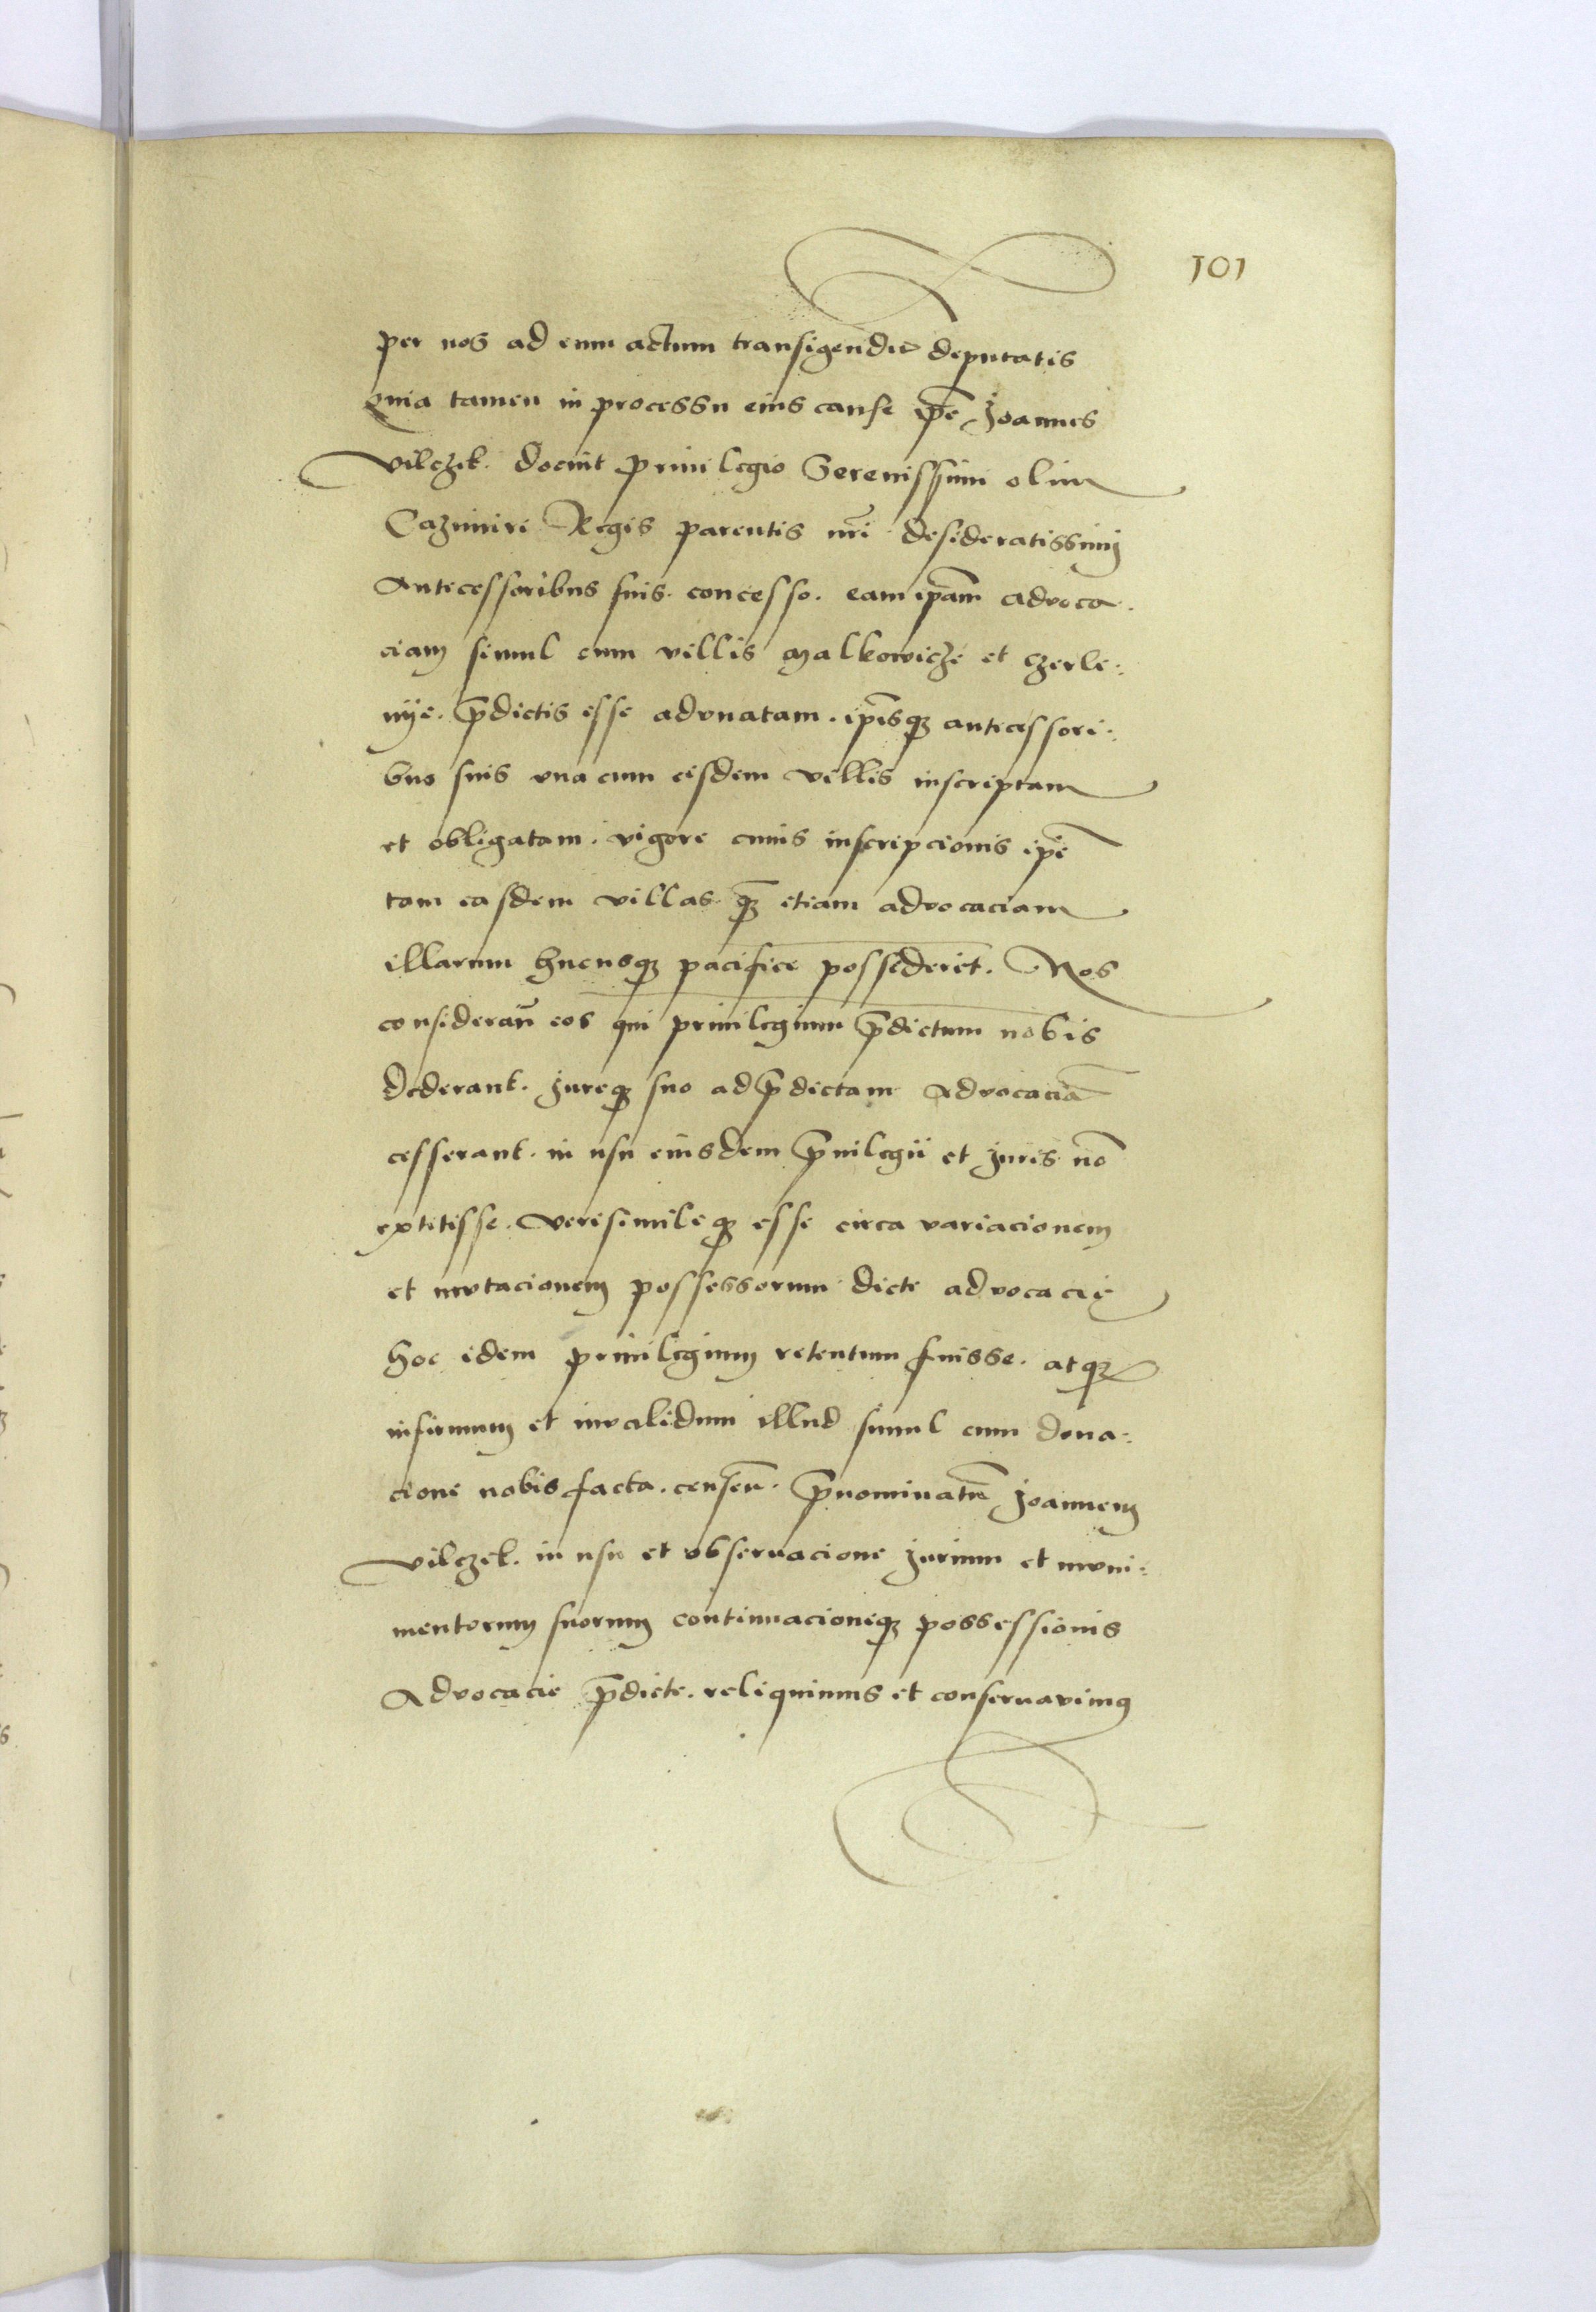 101
per nos ad eum actum transigendū deputatis
Quia tamen in processu eius cause ip̄e Joannes
Vilczek. docuit privilegio Serenissimi olim
Cazimiri Regis parentis nr̄i desideratissimi
Antecessoribus suis. concesso. eam ip̄am advoca.
ciam simul cum villis Malkowicze et Czerle:
nye. p̄dictis esse adunatam. ip̄isq̨ antecessori:
bus suis una cum eisdem villis inscriptam
et obligatam. vigore cuius inscripcionis ip̄e
tam easdem villas q̨̄ etiam advocaciam
illarum hucusq̨ pacifice possederit. Nos
consideran̄ eos qui privilegium p̄dictum nobis
dederant. Jureq̨ suo ad p̄dictam Advocaciā
cesserant. in usu eiusdem p̄vilegii et Juris nō
extitisse. Verisimileq̨ esse circa variacionem
et mutacionem possessorum dicte advocacie
hoc idem privilegium retentum fuisse. atq̨
infirmum et invalidum illud simul cum dona:
cione nobis facta. censen̄. p̄nominatū Joannem
Vilczek. in usu et observacione Jurium et muni:
mentorum suorum continuacioneq̨ possessionis
Advocacie p̄dicte. reliquimus et conservavimus